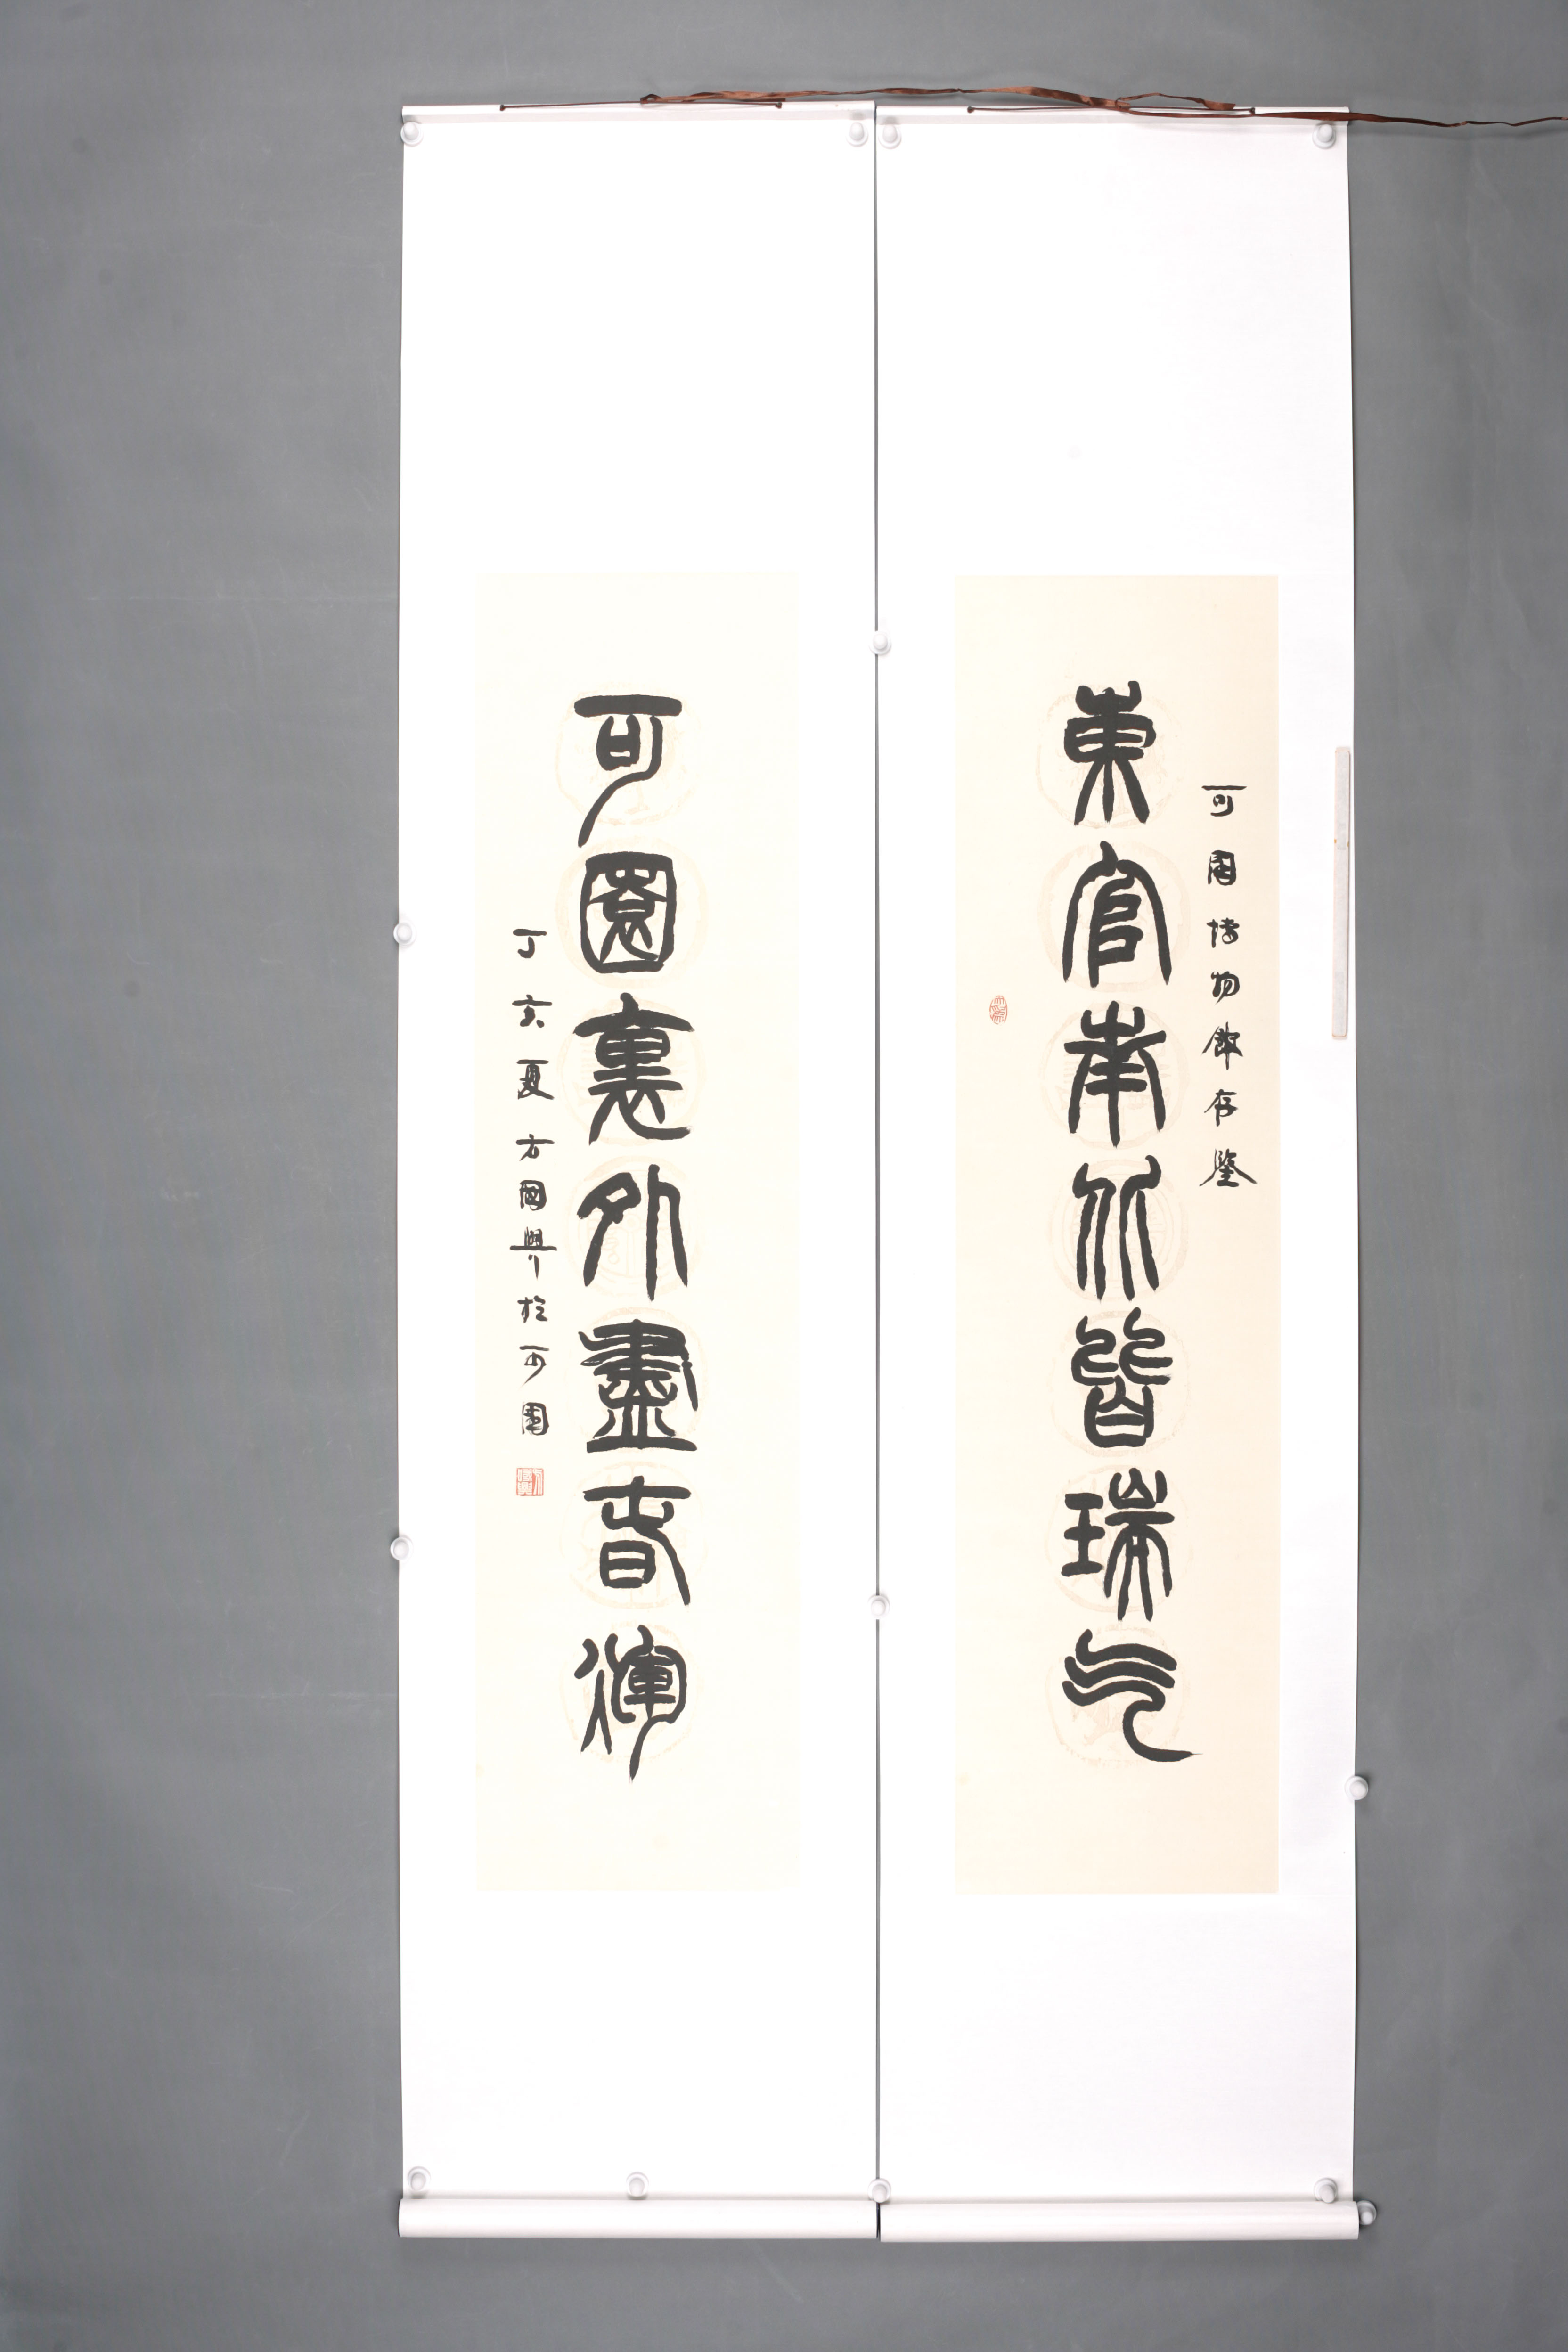 可園博物館存鑒
東官南北皆瑞气
可園裏外盡春煇
丁亥夏方國興於可園